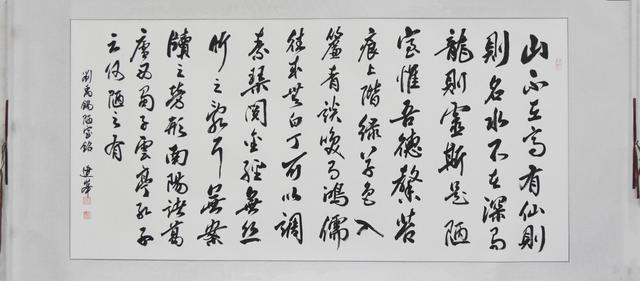 山不在高有仙則
則名水不在深有
龍則靈斯是陋
室惟吾德馨苔
痕上階綠草色入
簾青談笑有鴻儒
往来無白丁可以調
素琴閱金經無絲
竹之亂耳無案
牘之勞形南陽諸葛
廬西蜀子雲亭孔子
云何陋之有
劉禹錫陋室銘